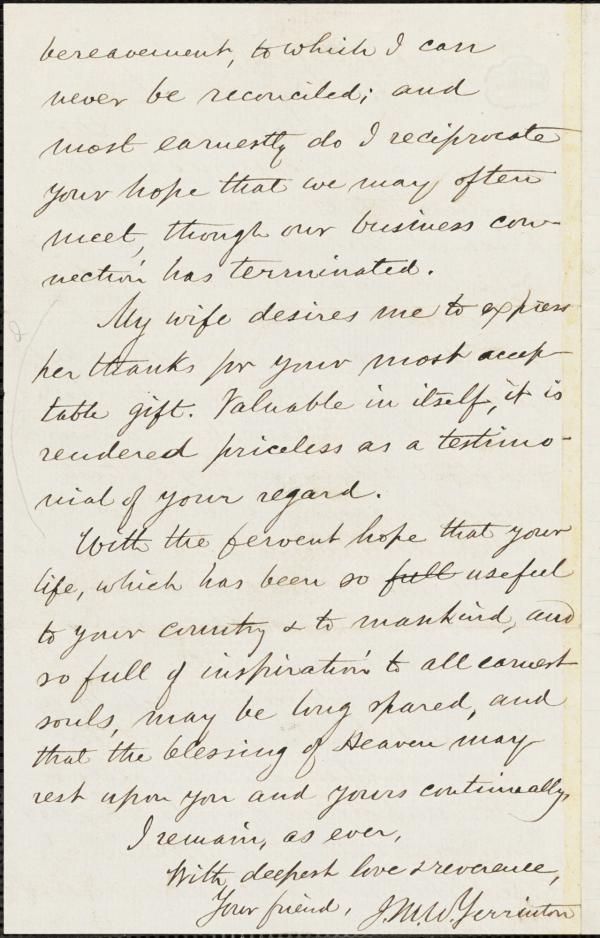 bereavement, to which I can
never be reconciled; and
most earnestly do I reciprocate
your hope that we may often
meet, though our business con-
nection has terminated.
My wife desires me to express
her thanks for your most accep-
table gift. Valuable in itself, it is
rendered priceless as a testimo-
nial of your regard.
With the fervent hope that your
life, which has been so full useful
to your country & to mankind, and
so full of inspiration to all earnest
souls, may be long spared, and
that the blessing of Heaven may
rest upon you and yours continually,
I remain, as ever,
With deepest love & reverence,
Your friend, J.M.W. Yerrinton